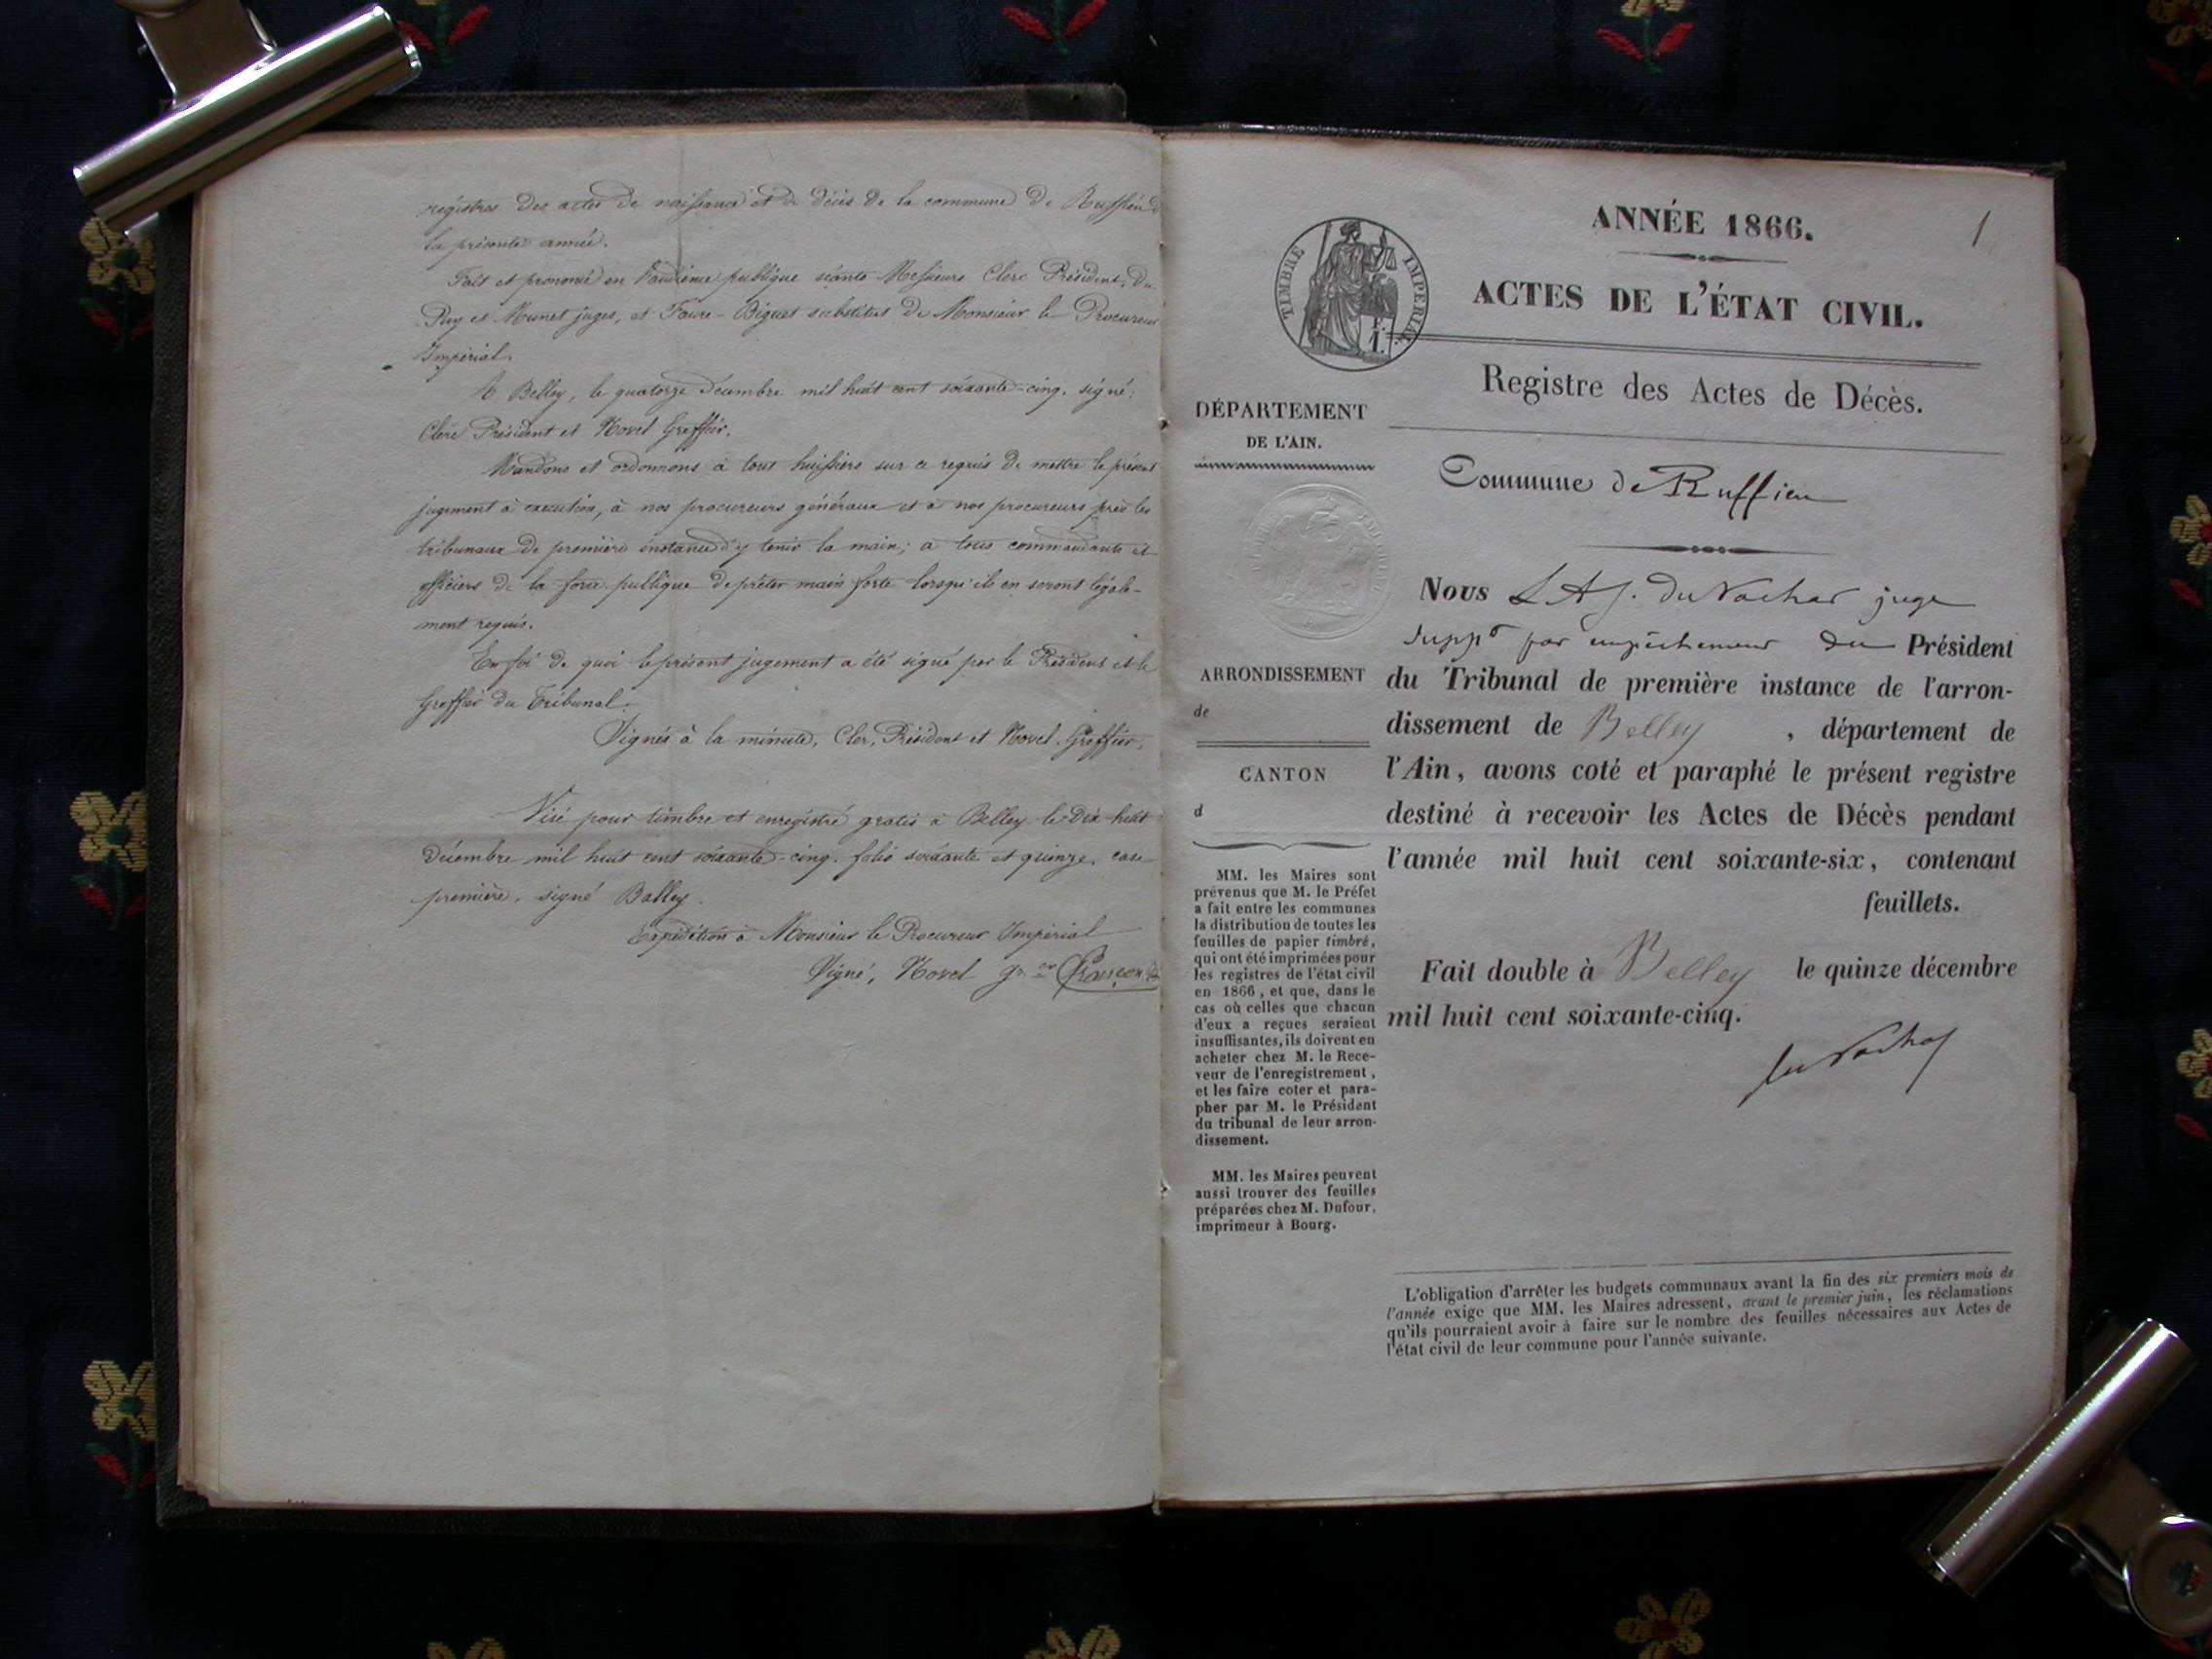 registres des actes de naissance et de décès de la commune de Ruffieu
la présente année.
Fait et prononcé en l'audience publique séants Messieurs Clerc Président, Du
Puy et Munet juges, et Faure-Biguet substitut de Monsieur le Procureur
Impérial.
A Belley, le quatorze décembre mil huit cent soixante-cinq. signé:
Clerc Président et Hovel Greffier.
Mandons et ordonnons à tous huissiers sur ce requis de mettre le présent
jugement à exécution, à nos procureurs généraux et à nos procureurs près les
tribunaux de première instance d'y tenir la main; à tous commandants et
officiers de la force publique de prêter main forte lorsqu'ils en seront légale-
ment requis.
En foi de quoi le présent jugement a été signé par le Président et le
Greffier du Tribunal.
Signés à la minute, Cler, Président et Hovel. Greffier,
Visé pour timbre et enregistré gratis à Belley le dix-huit
décembre mil huit cent soixante-cinq. folio soixante et quinze, case
première. signé Balley.
Expédition à Monsieur le Procureur Impérial
Signé, Hovel gr er
1
ANNÉE 1866.
ACTES DE L'ÉTAT CIVIL.
Registre des Actes de Décès.
TIMBRE IMPÉRIAL
1 F.
DÉPARTEMENT
DE L'AIN.
Commune de Ruffieu
ARRONDISSEMENT
de
CANTON
d
MM. les Maires sont
prévenus que M. le Préfet
a fait entre les communes
la distribution de toutes les
feuilles de papier timbré,
qui ont été imprimées pour
les registres de l'état civil
en 1866, et que, dans le
cas où celles que chacun
d'eux a reçues seraient
insuffisantes, ils doivent en
acheter chez M. le Rece-
veur de l'enregistrement,
et les faire coter et para-
pher par M. le Président
du tribunal de leur arron-
dissement.
MM. les Maires peuvent
aussi trouver des feuilles
préparées chez M. Dufour,
imprimeur à Bourg.
Nous juge
supp par empêchement du Président
du Tribunal de première instance de l'arron-
dissement de Belley , département de
l'Ain, avons coté et paraphé le présent registre
destiné à recevoir les Actes de Décès pendant
l'année mil huit cent soixante-six, contenant
feuillets.
Fait double à Belley le quinze décembre
mil huit cent soixante-cinq.
L'obligation d'arrêter les budgets communaux avant la fin des six premiers mois de
l'année exige que MM. les Maires adressent, avant le premier juin, les réclamations
qu'ils pourraient avoir à faire sur le nombre des feuilles nécessaires aux Actes de
l'état civil de leur commune pour l'année suivante.